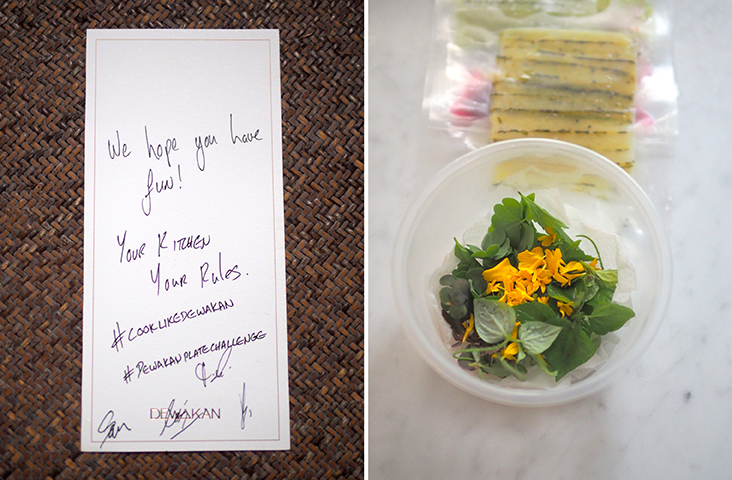 We hope you have
fun!
Your Kitchen
Your Rules.
#COOKLIKEDEWAKAN
#DEWAKANPLATECHALLENGE
DEWAKAN